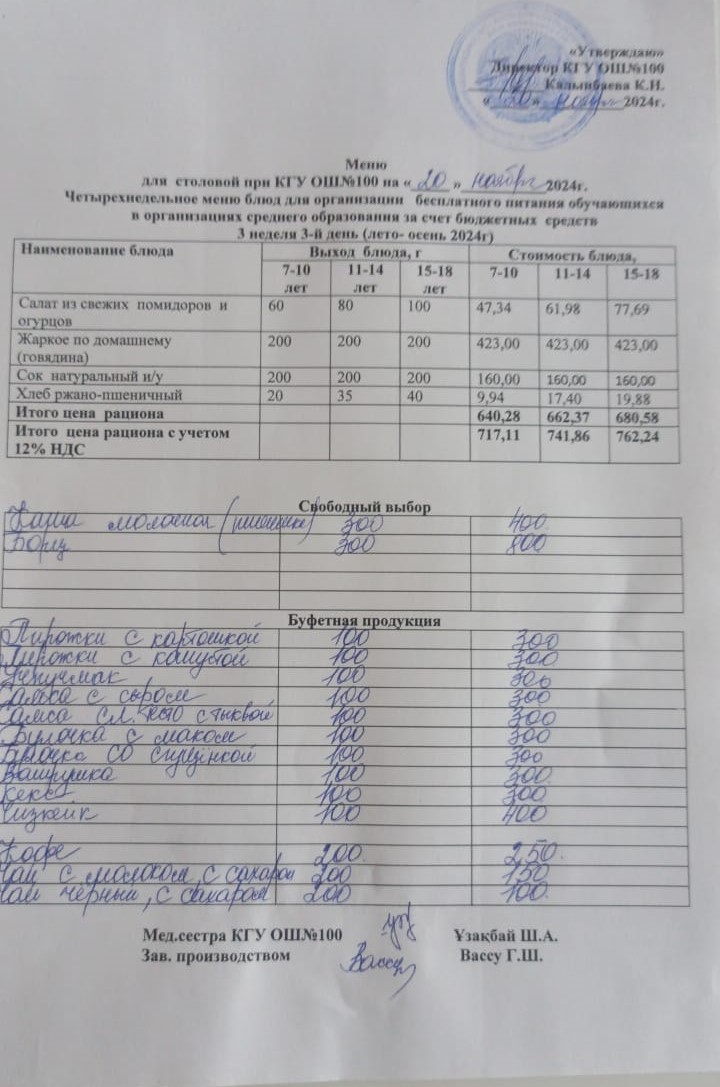 «Утверждаю»
Директор КГУ ОШ№100
Калынбаева К.Н.
« 20 » ноября 2024г.
Меню
для столовой при КГУ ОШ№100 на « 20 » ноября 2024г.
Четырехнедельное меню блюд для организации бесплатного питания обучающихся
в организациях среднего образования за счет бюджетных средств
3 неделя 3-й день (лето- осень 2024г)
Наименование блюда Выход блюда, г Стоимость блюда,
7-10 лет 11-14 лет 15-18 лет 7-10 11-14 15-18
Салат из свежих помидоров и огурцов 60 80 100 47,34 61,98 77,69
Жаркое по домашнему (говядина) 200 200 200 423,00 423,00 423,00
Сок натуральный и/у 200 200 200 160,00 160,00 160,00
Хлеб ржано-пшеничный 20 35 40 9,94 17,40 19,88
Итого цена рациона 640,28 662,37 680,58
Итого цена рациона с учетом 12% НДС 717,11 741,86 762,24
Свободный выбор
Каша молочная 300 400
Борщ 300 800
Буфетная продукция
Пирожки с картошкой 100 300
Пирожки с капустой 100 300
Учпучмак 100 300
Самса с сыром 100 300
Самса сл. тесто с тыквой 100 300
Булочка с маком 100 300
Булочка со сгущенкой 100 300
Ватрушка 100 300
Кекс 100 300
Чизкейк 100 400
Кофе 200 250
Чай с молоком, с сахаром 200 150
Чай черный, с сахаром 200 100
Мед.сестра КГУ ОШ№100 Ұзақбай Ш.А.
Зав. производством Вассу Вассу Г.Ш.